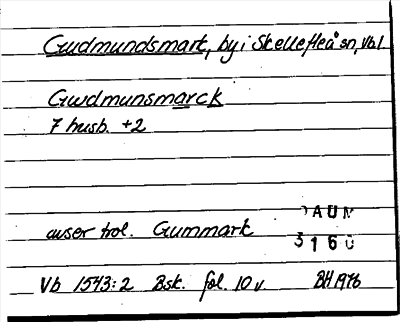 Gudmundsmart, by i Skellefteå sn, Vbl
Gwdmunsmarck
7 husb. +2
avser trol. Gummark
DAUM
3160
Vb 1543:2 Bsk. fol. 10 v. BH 1976